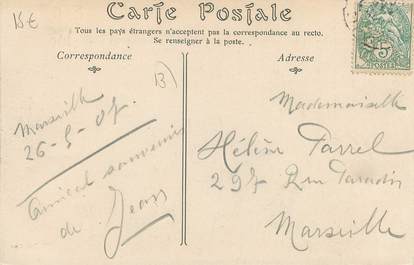 15€
Carte Postale
Tous les pays étrangers n'acceptent pas la correspondance au recto.
Se renseigner à la poste.
Correspondance
Adresse
13)
Marseille
26-5-07
Amical souvenir
de Jean
Mademoiselle
Hélène Farrel
294 Rue Paradis
Marseille
5
POSTES